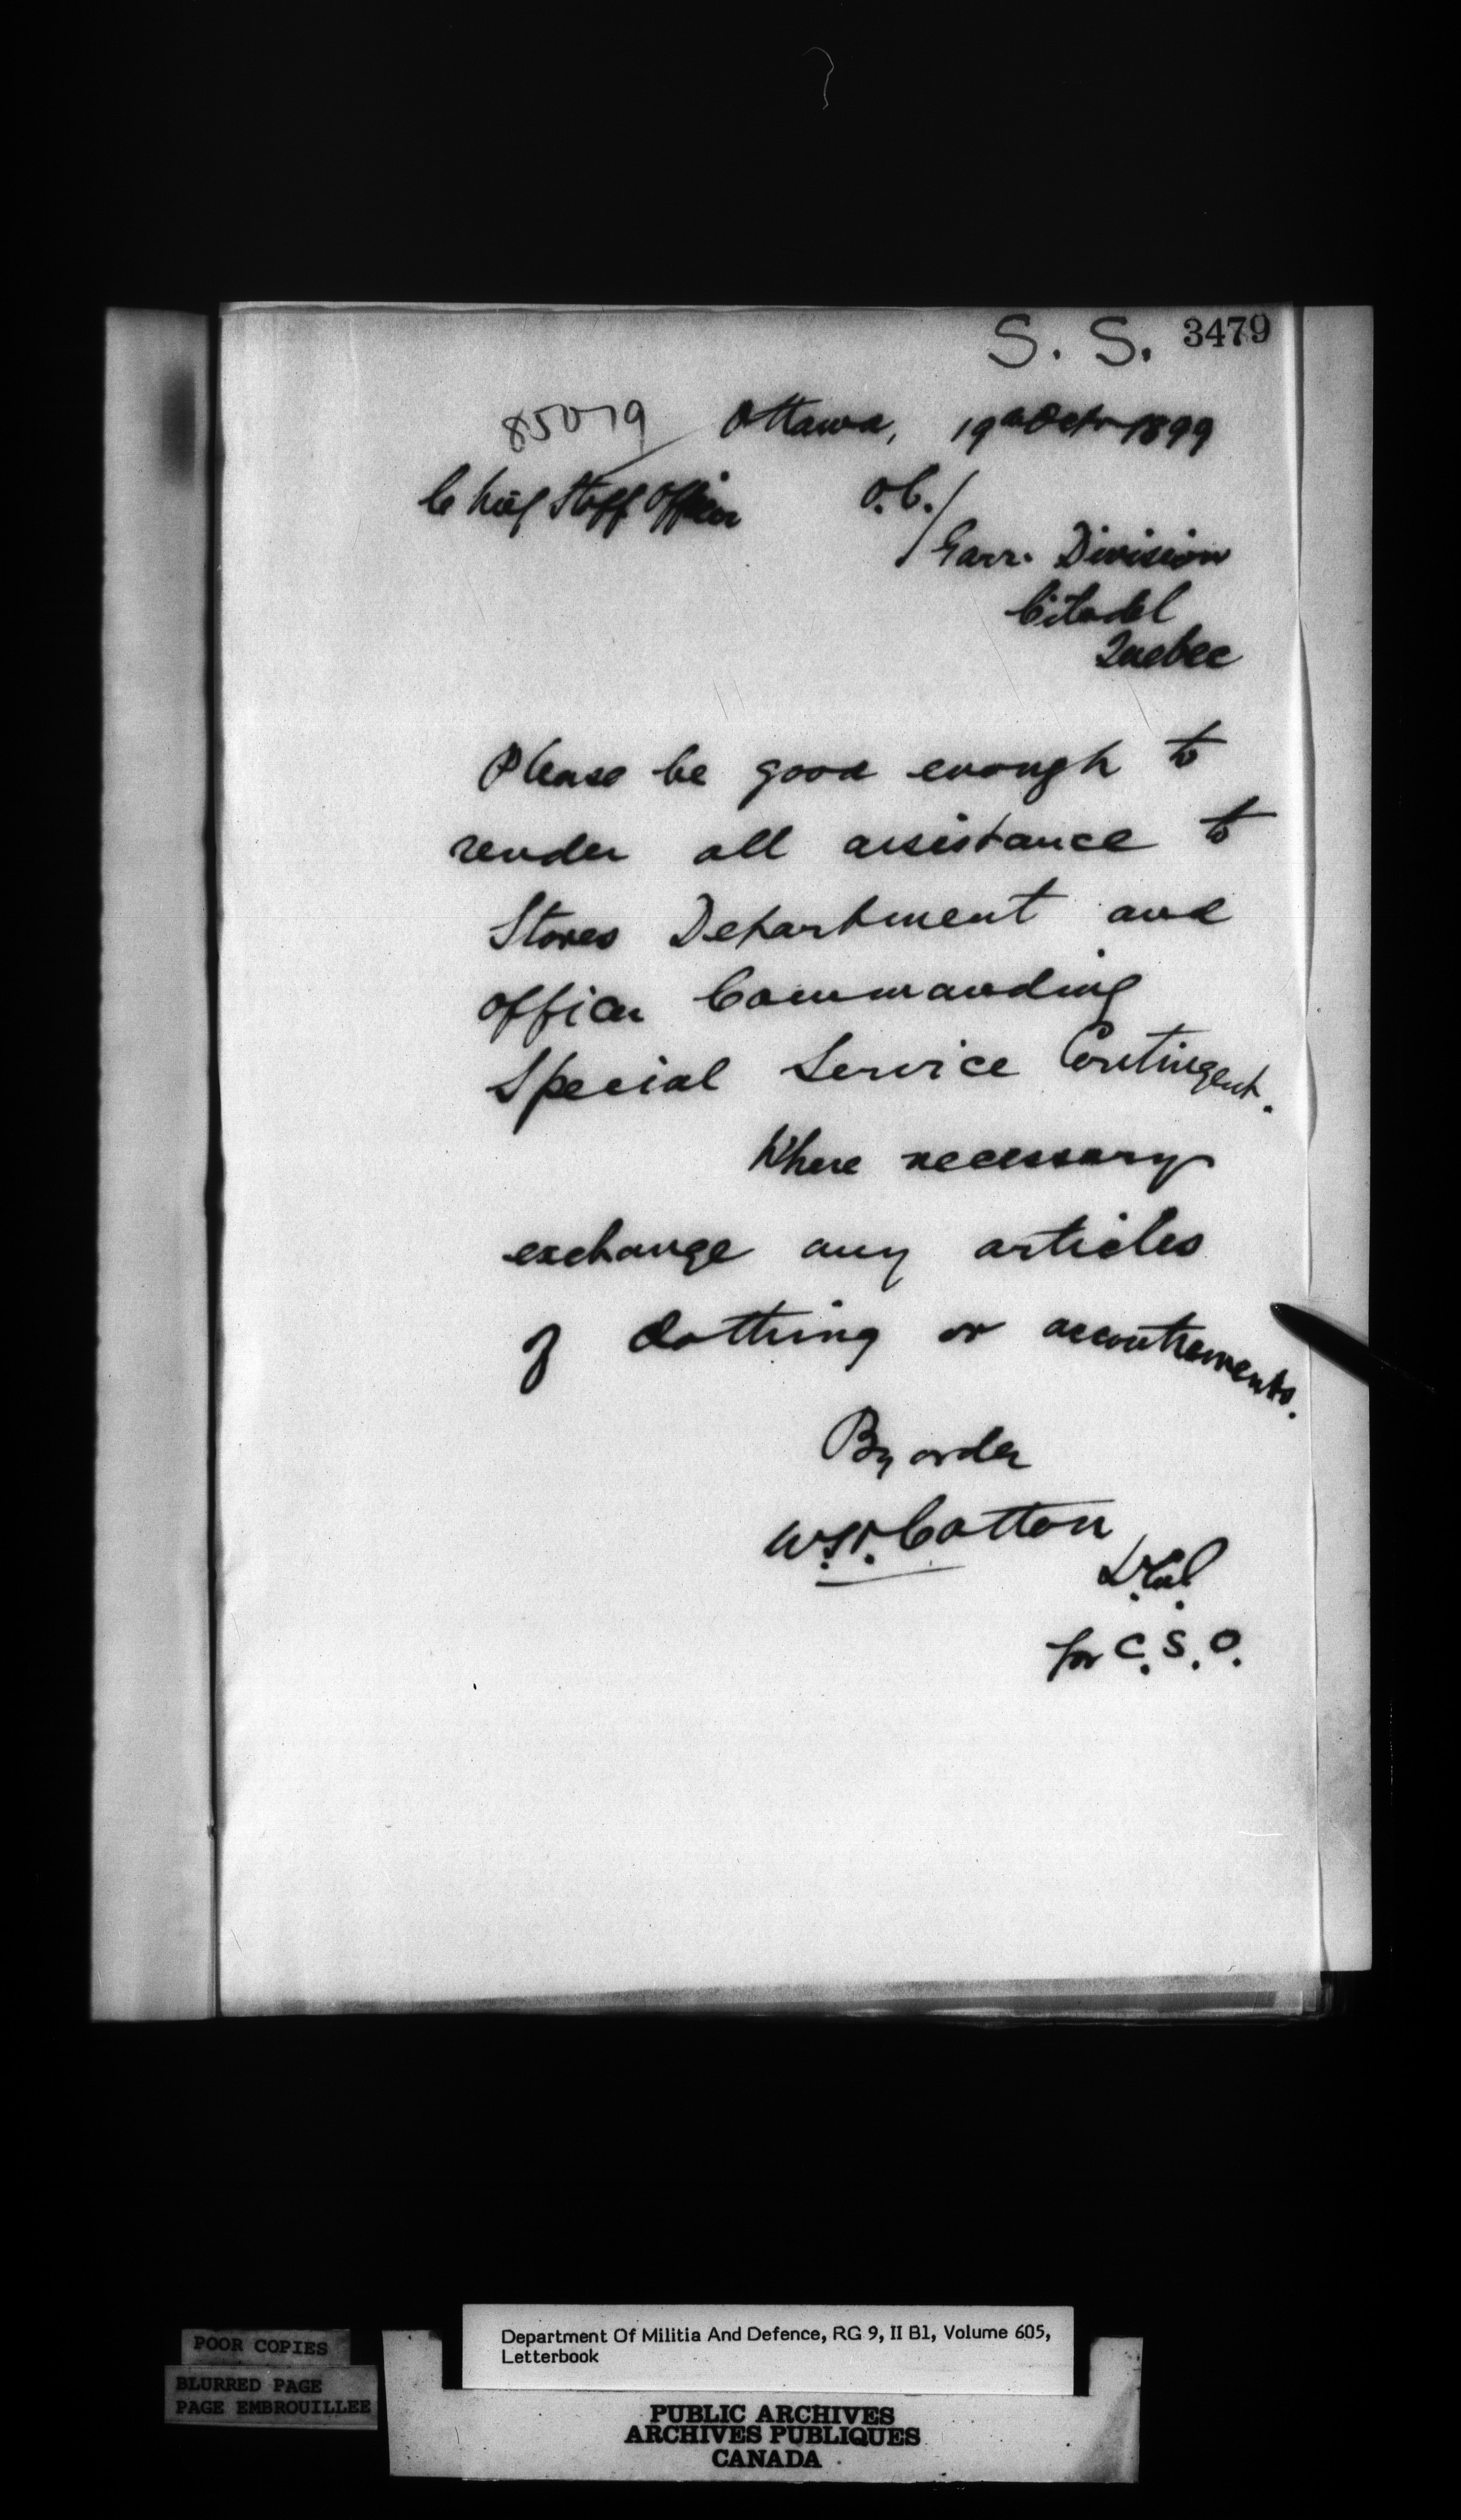 S. S. 3479
85079 Ottawa, 19th Octr 1899
Chief Staff Officer O.C./
Garr. Division
Citadel
Quebec
Please be good enough to
render all assistance to
Stores Department and
officer Commanding
Special Service Contingent.
Where necessary
exchange any articles
of clothing or accoutrements.
By order
Cotton
Lt. Col.
for C.S.O.
POOR COPIES
BLURRED PAGE
PAGE EMBROUILLEE
Department Of Militia And Defence, RG 9, II B1, Volume 605,
Letterbook
PUBLIC ARCHIVES
ARCHIVES PUBLIQUES
CANADA